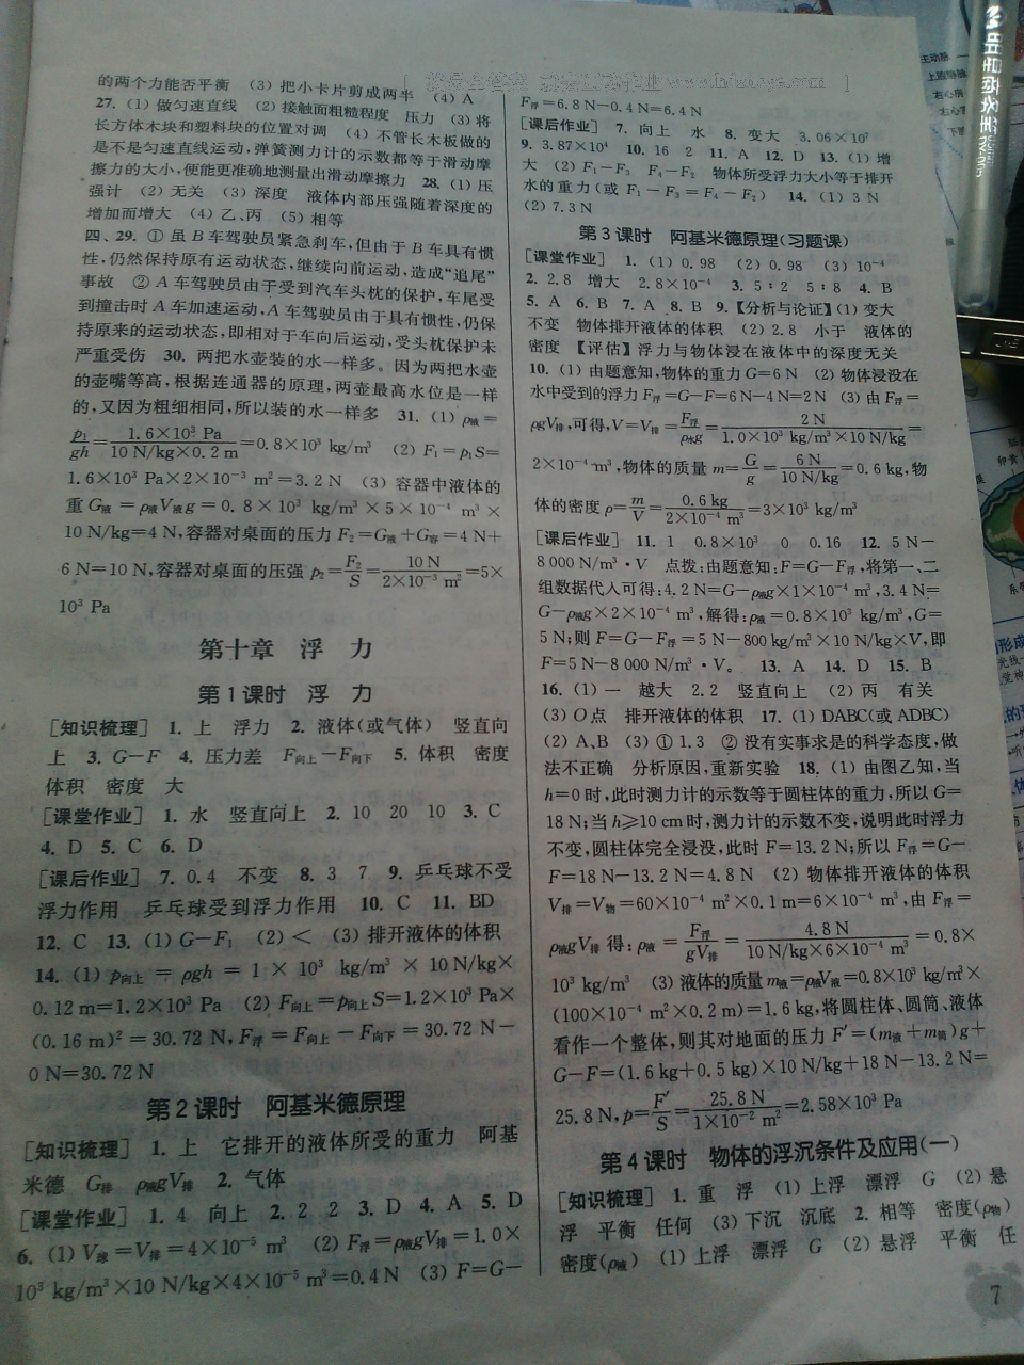 的两个力能否平衡 (3) 把小卡片剪成两半 (4) A
27. (1) 做匀速直线 (2) 接触面粗糙程度 压力 (3) 将
长方体木块和塑料块的位置对调 (4) 不管长木板做的
是不是匀速直线运动，弹簧测力计的示数都等于滑动摩
擦力的大小，便能更准确地测量出滑动摩擦力 28. (1) 压
强计 (2) 无关 (3) 深度 液体内部压强随着深度的
增加而增大 (4) 乙、丙 (5) 相等
四、29. ① 虽 B 车驾驶员紧急刹车，但由于 B 车具有惯
性，仍然保持原有运动状态，继续向前运动，造成“追尾”
事故 ② A 车驾驶员由于受到汽车头枕的保护，车尾受
到撞击时 A 车加速运动，A 车驾驶员由于具有惯性，仍保
持原来的运动状态，即相对于车向后运动，受头枕保护未
严重受伤 30. 两把水壶装的水一样多。因为两把水壶
的壶嘴等高，根据连通器的原理，两壶最高水位是一样
的，又因为粗细相同，所以装的水一样多 31. (1) ρ液＝
p₁/gh＝1.6×10³ Pa/(10 N/kg×0.2 m)＝0.8×10³ kg/m³ (2) F₁＝p₁S＝
1.6×10³ Pa×2×10⁻³ m²＝3.2 N (3) 容器中液体的
重 G液＝ρ液V液g＝0.8×10³ kg/m³×5×10⁻⁴ m³×
10 N/kg＝4 N，容器对桌面的压力 F₂＝G液＋G容＝4 N＋
6 N＝10 N，容器对桌面的压强 p₂＝F₂/S＝10 N/(2×10⁻³ m²)＝5×
10³ Pa
第十章 浮 力
第 1 课时 浮 力
[知识梳理] 1. 上 浮力 2. 液体(或气体) 竖直向
上 3. G－F 4. 压力差 F向上－F向下 5. 体积 密度
体积 密度 大
[课堂作业] 1. 水 竖直向上 2. 10 20 10 3. C
4. D 5. C 6. D
[课后作业] 7. 0.4 不变 8. 3 7 9. 乒乓球不受
浮力作用 乒乓球受到浮力作用 10. C 11. BD
12. C 13. (1) G－F₁ (2) ＜ (3) 排开液体的体积
14. (1) p向上＝ρgh＝1×10³ kg/m³×10 N/kg×
0.12 m＝1.2×10³ Pa (2) F向上＝p向上S＝1.2×10³ Pa×
(0.16 m)²＝30.72 N，F浮＝F向上－F向下＝30.72 N－
0 N＝30.72 N
第 2 课时 阿基米德原理
[知识梳理] 1. 上 它排开的液体所受的重力 阿基
米德 G排 ρ液gV排 2. 气体
[课堂作业] 1. 4 向上 2. 2 2 3. D 4. A 5. D
6. (1) V球＝V排＝4×10⁻⁵ m³ (2) F浮＝ρ液gV排＝1.0×
10³ kg/m³×10 N/kg×4×10⁻⁵ m³＝0.4 N (3) F＝G－
F浮＝6.8 N－0.4 N＝6.4 N
[课后作业] 7. 向上 水 8. 变大 3.06×10⁷
9. 3.87×10⁴ 10. 16 2 11. A 12. D 13. (1) 增
大 (2) F₁－F₃ F₄－F₂ 物体所受浮力大小等于排开
水的重力(或 F₁－F₃＝F₄－F₂) 14. (1) 3 N
(2) 7.3 N
第 3 课时 阿基米德原理(习题课)
[课堂作业] 1. (1) 0.98 (2) 0.98 (3) 10⁻⁴
2. 2.8 增大 2.8×10⁻⁴ 3. 5∶2 5∶8 4. B
5. A 6. B 7. A 8. B 9.【分析与论证】(1) 变大
不变 物体排开液体的体积 (2) 2.8 小于 液体的
密度 【评估】浮力与物体浸在液体中的深度无关
10. (1) 由题意知，物体的重力 G＝6 N (2) 物体浸没在
水中受到的浮力 F浮＝G－F＝6 N－4 N＝2 N (3) 由 F浮＝
ρgV排，可得，V＝V排＝F浮/ρ水g＝2 N/(1.0×10³ kg/m³×10 N/kg)＝
2×10⁻⁴ m³，物体的质量 m＝G/g＝6 N/(10 N/kg)＝0.6 kg，物
体的密度 ρ＝m/V＝0.6 kg/(2×10⁻⁴ m³)＝3×10³ kg/m³
[课后作业] 11. 1 0.8×10³ 0 0.16 12. 5 N－
8 000 N/m³·V 点拨：由题意知：F＝G－F浮，将第一、二
组数据代人可得：4.2 N＝G－ρ液g×1×10⁻⁴ m³，3.4 N＝
G－ρ液g×2×10⁻⁴ m³，解得：ρ液＝0.8×10³ kg/m³，G＝
5 N；则 F＝G－F浮＝5 N－800 kg/m³×10 N/kg×V，即
F＝5 N－8 000 N/m³·V。 13. A 14. D 15. B
16. (1) 一 越大 2.2 竖直向上 (2) 丙 有关
(3) O 点 排开液体的体积 17. (1) DABC(或 ADBC)
(2) A、B (3) ① 1.3 ② 没有实事求是的科学态度，做
法不正确 分析原因，重新实验 18. (1) 由图乙知，当
h＝0 时，此时测力计的示数等于圆柱体的重力，所以 G＝
18 N；当 h≥10 cm 时，测力计的示数不变，说明此时浮力
不变，圆柱体完全浸没，此时 F＝13.2 N；所以 F浮＝G－
F＝18 N－13.2 N＝4.8 N (2) 物体排开液体的体积
V排＝V物＝60×10⁻⁴ m²×0.1 m＝6×10⁻⁴ m³，由 F浮＝
ρ液gV排 得：ρ液＝F浮/gV排＝4.8 N/(10 N/kg×6×10⁻⁴ m³)＝0.8×
10³ kg/m³ (3) 液体的质量 m液＝ρ液V液＝0.8×10³ kg/m³×
(100×10⁻⁴ m²×0.2 m)＝1.6 kg，将圆柱体、圆筒、液体
看作一个整体，则其对地面的压力 F′＝(m液＋m筒)g＋
G－F＝(1.6 kg＋0.5 kg)×10 N/kg＋18 N－13.2 N＝
25.8 N，p＝F′/S＝25.8 N/(1×10⁻² m²)＝2.58×10³ Pa
第 4 课时 物体的浮沉条件及应用(一)
[知识梳理] 1. 重 浮 (1) 上浮 漂浮 G (2) 悬
浮 平衡 任何 (3) 下沉 沉底 2. 相等 密度(ρ物)
密度(ρ液) (1) 上浮 漂浮 G (2) 悬浮 平衡 任
7